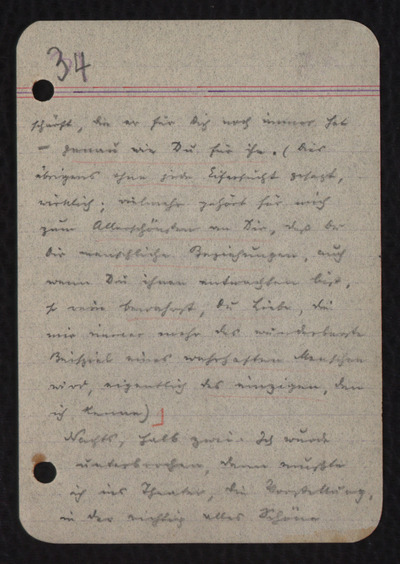 34
schaft, die er für Dich noch immer hat
– genau wie Du für ihn. (Dies
übrigens ohne jede Eifersucht gesagt,
wirklich; vielmehr gehört für mich
zum Allerschönsten an Dir, daß Du
Dir menschliche Beziehungen, auch
wenn Du ihnen entwachsen bist,
so rein bewahrst, Du Liebe, die
mir immer mehr das wunderbarste
Beispiel eines wahrhaften Menschen
wird, eigentlich des einzigen, den
ich kenne)
Nachts, halb zwei: Ich wurde
unterbrochen, denn mußte
ich ins Theater, die Vorstellung,
in der richtig alles Schöne